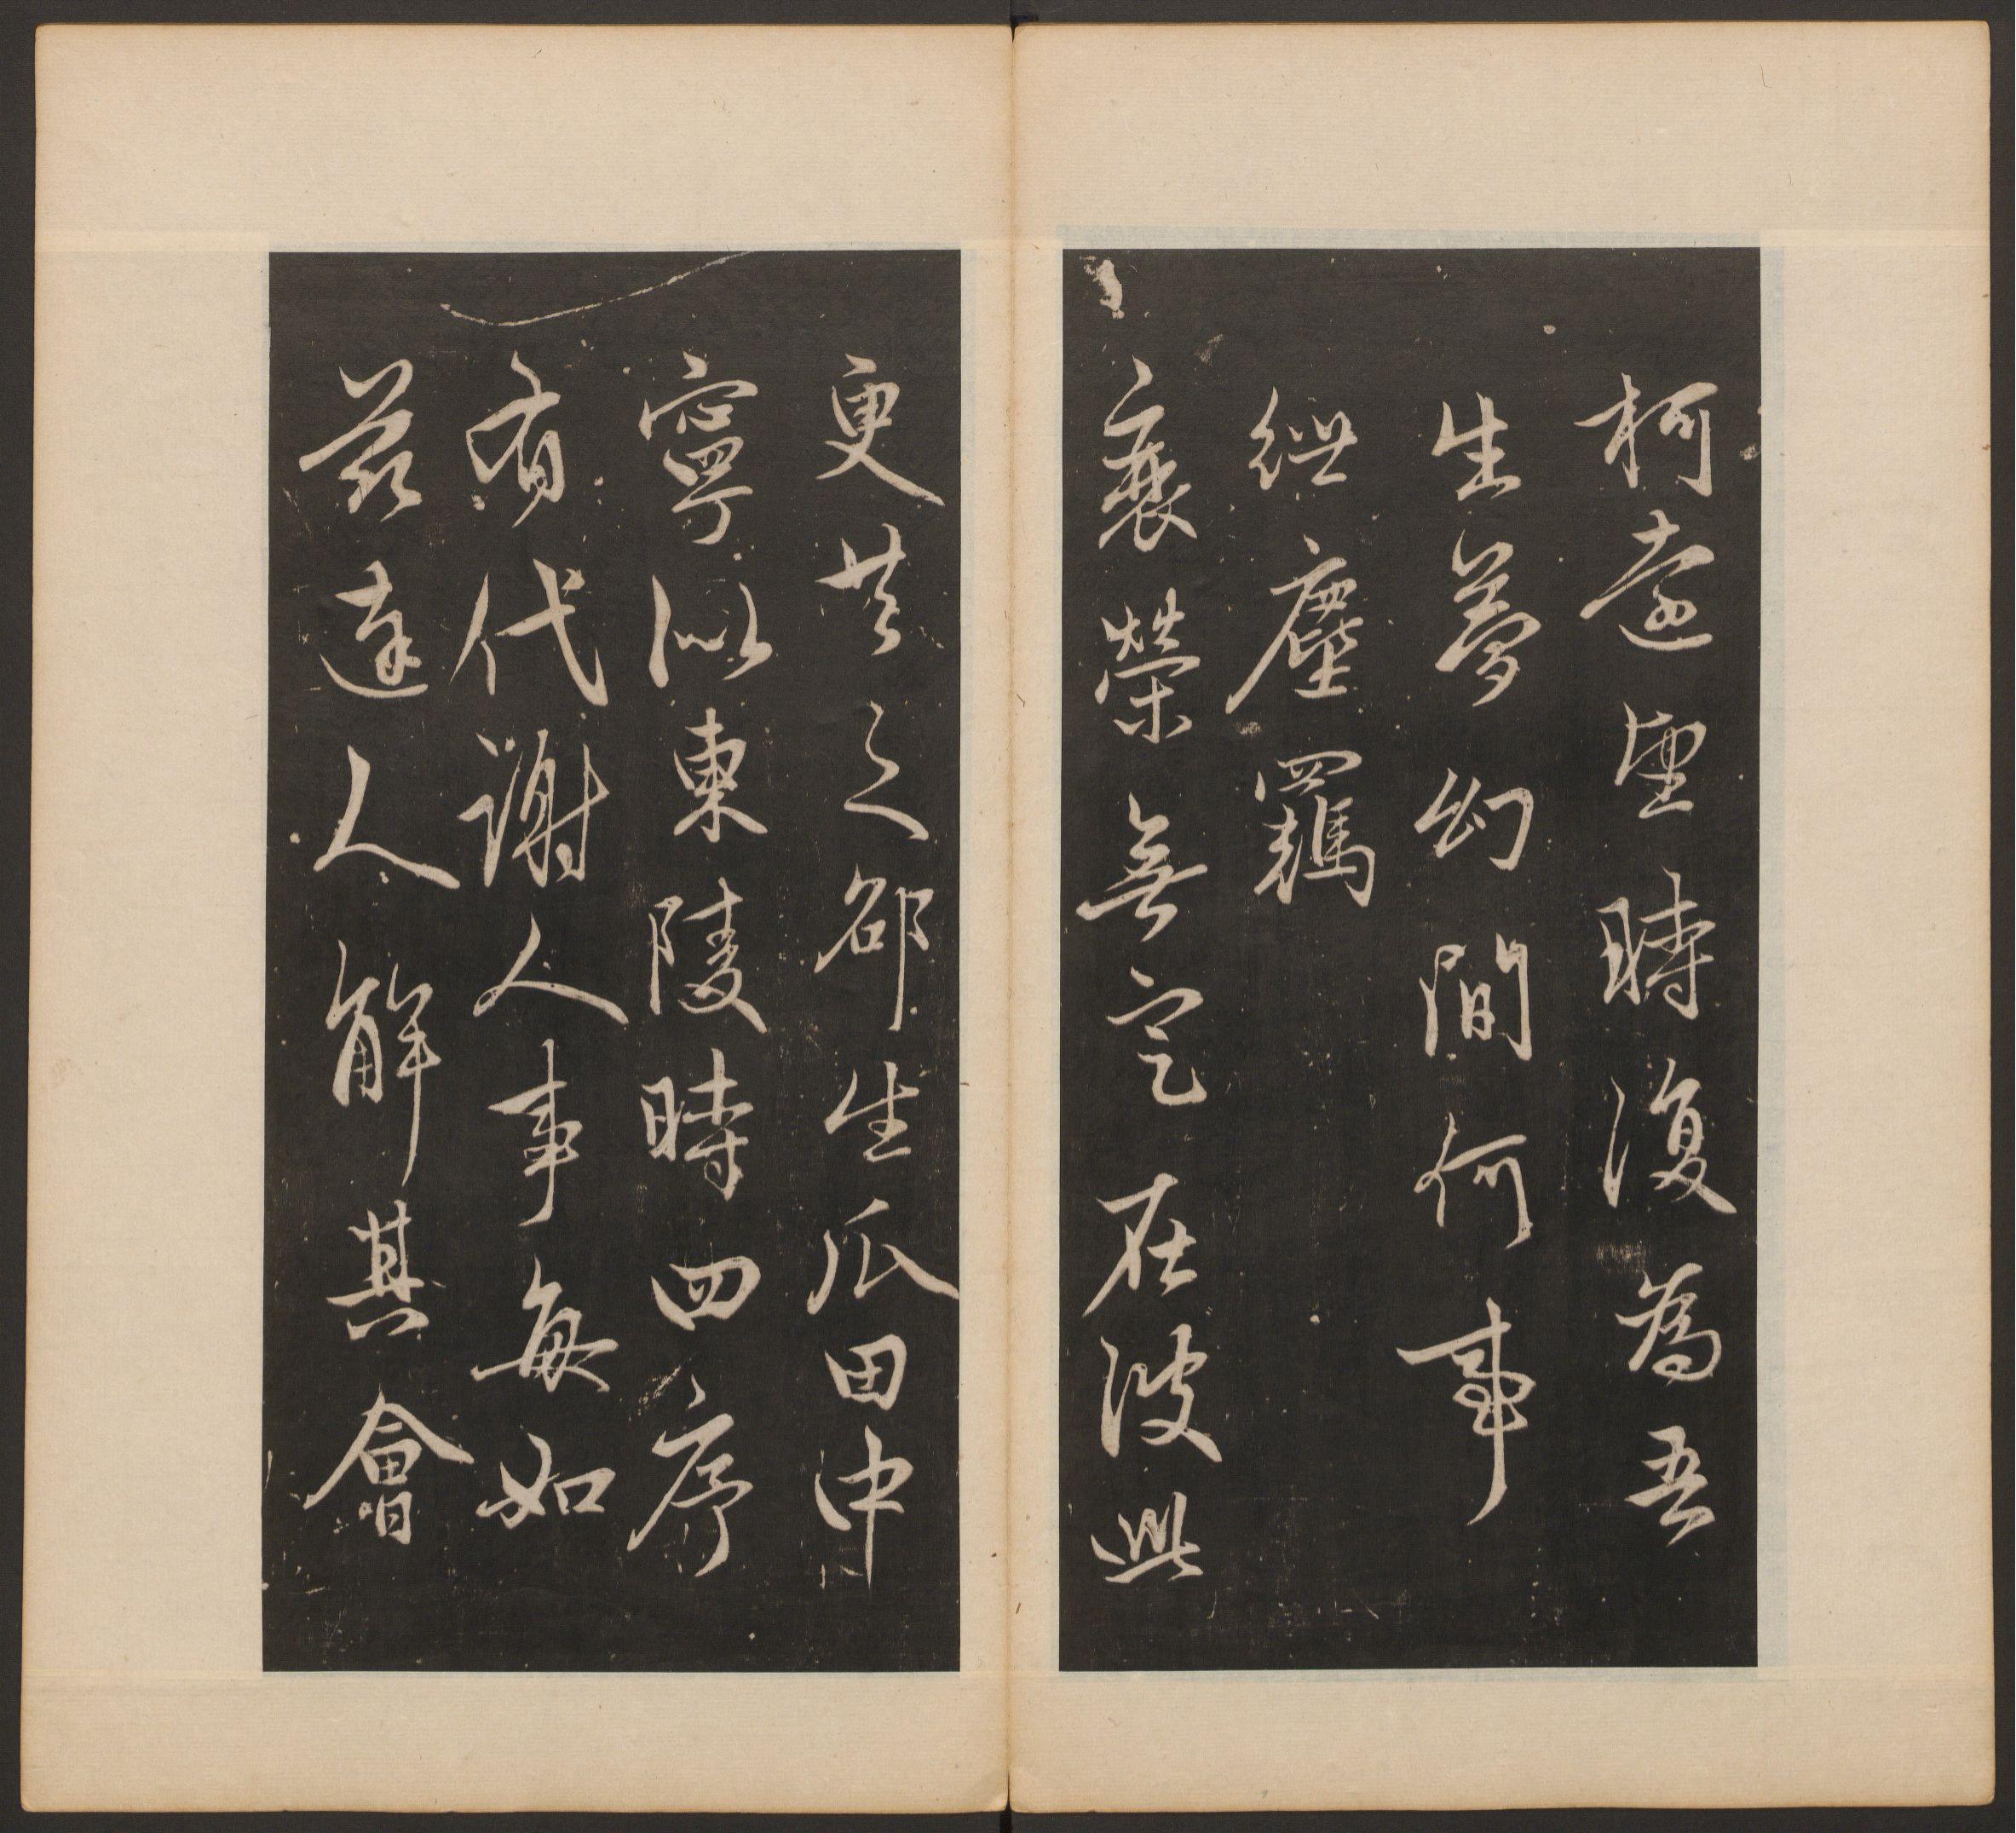 柯遠望時復為吾
生夢幻間何事
紲塵羈
衰榮無定在彼此
更共之邵生瓜田中
寧似東陵時四序
有代謝人事每如
茲達人解其會